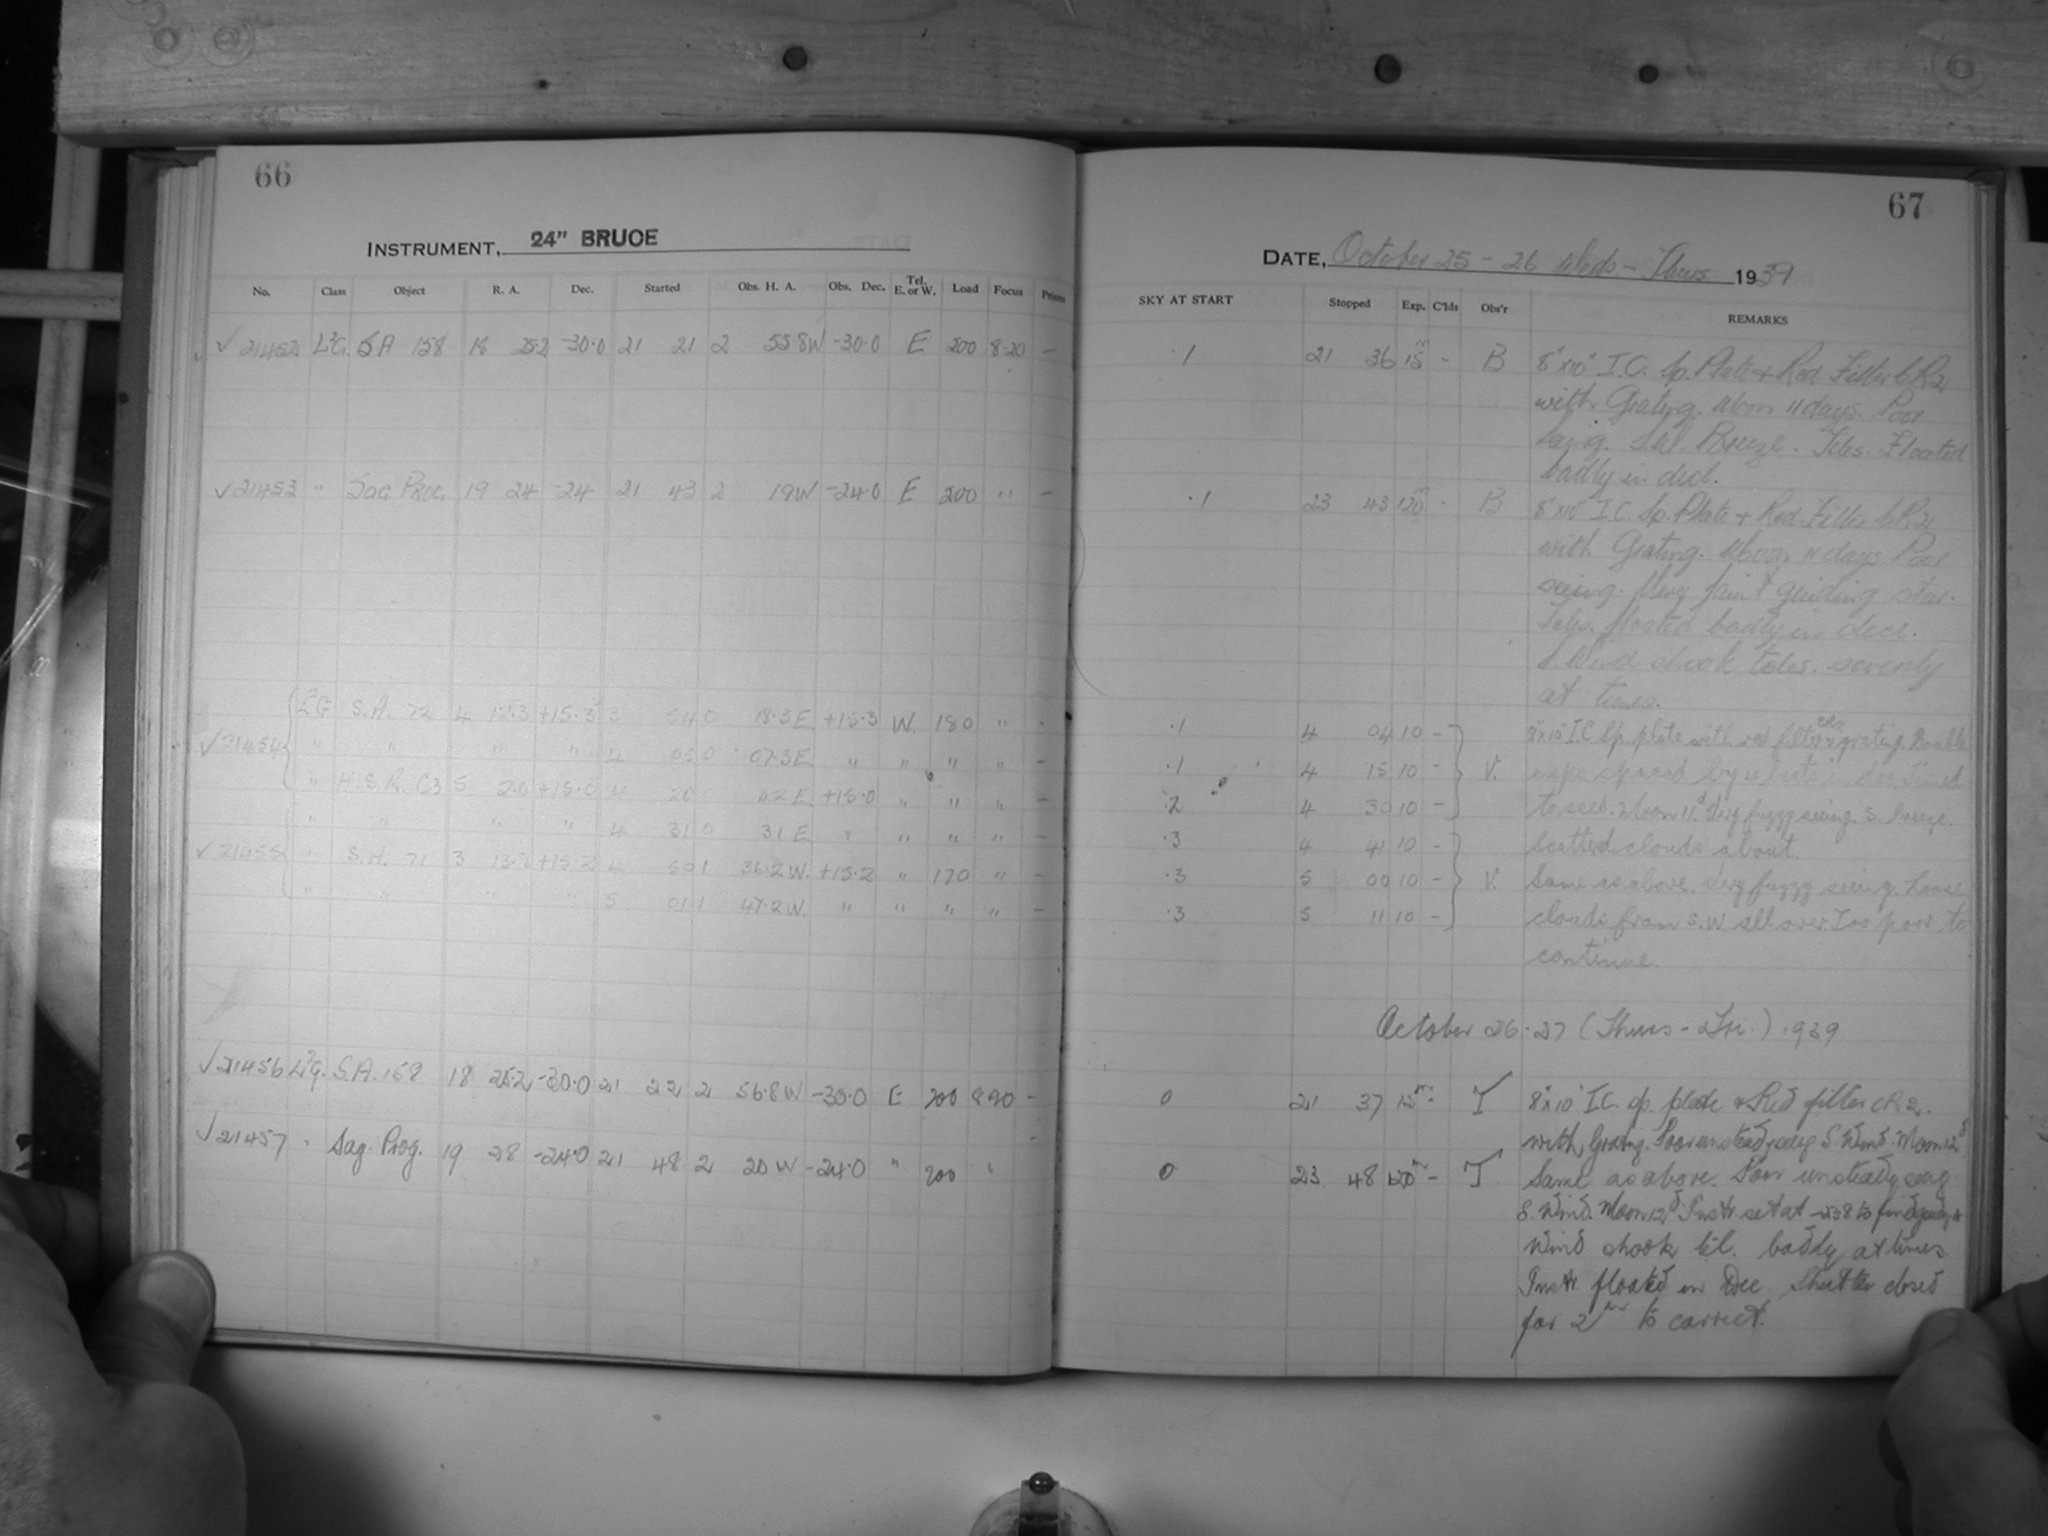 66
INSTRUMENT, 24" BRUCE
No. Class Object R. A. Dec. Started Obs. H. A. Obs. Dec. Tel. E. or W. Load Focus Prisms
✓ 21452 SA 158 18 25.2 -30.0 21 21 2 55.8W -30.0 E 200 8.20 -
✓ 21453 " Sag. Prog. 19 24 -24 21 43 2 19W -24.0 E 200 " -
S.A. 72 4 12.3 +15.3 3 54 0 18.3E +15.3 W. 180 " -
✓ 21454 " " " " 4 05 0 07.3E " " " " -
" H.S.R. C3 5 2.0 +15.0 4 20 0 42E +15.0 " " " -
" " " " 4 31 0 31E " " " " -
✓ 21455 " S.A. 71 3 13.8 +15.2 4 50 1 36.2W. +15.2 " 170 " -
" " " " 5 01 1 47.2W. " " " " -
✓ 21456 S.A. 158 18 25.2 -30.0 21 22 2 56.8W -30.0 E 200 8.20 -
✓ 21457 Sag. Prog. 19 28 -24.0 21 48 2 20W -24.0 " 200 "
67
DATE, October 25 - 26 Weds - Thurs 1939
SKY AT START Stopped Exp. C'lds Obs'r REMARKS
.1 21 36 15m - B 8"x10" I.C. Sp. Plate + Red Filter CR2
with Grating. Moon 11 days. Poor
seeing. S.W. Breeze. Teles. Floated
badly in decl.
.1 23 43 120m - B 8"x10" I.C. Sp. Plate + Red Filter CR2
with Grating. Moon 11 days. Poor
seeing. Very faint guiding star.
Teles. floated badly in decl.
S. Wind shook teles. severely
at times.
.1 4 04 10 - 8"x10" I.C. Sp. plate with red filter CR2 & grating. Double
.1 4 15 10 - V. exps spaced by in dec. Timed
.2 4 30 10 - to secs. Moon 11d Very fuzzy seeing. S. breeze.
.3 4 41 10 - Scatterd clouds about.
.3 5 00 10 - V. Same as above. Very fuzzy seeing. Loose
.3 5 11 10 - clouds from S.W all over. Too poor to
continue.
October 26-27 (Thurs - Fri.) 1939
0 21 37 15m - T 8"x10" I.C. sp. plate & Red filter CR2.
with Grating. Poor unsteady seeing S. Wind. Moon 12d
0 23 48 120m - T Same as above. Poor unsteady seeing
S. Wind. Moon 12d Instr set at to find
Wind shook tel. badly at times
Instr floated in Dec Shutter closed
for 2m to correct.